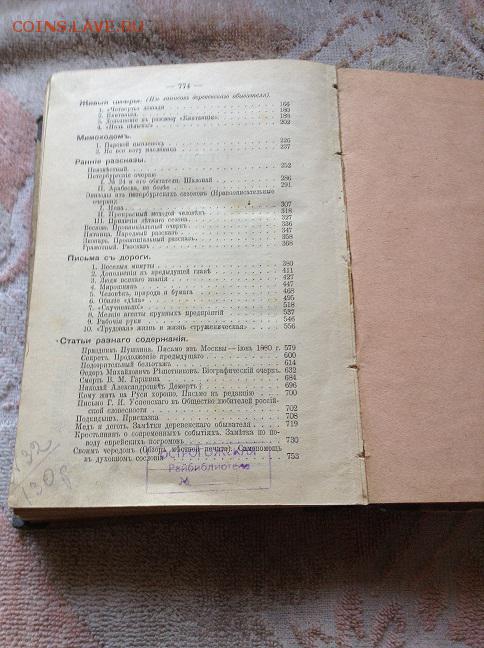 COINS.LAVE.RU
— 774 —
Живыя цифры. (Изъ записокъ деревенскаго обывателя).
1. «Четверть» лошади 166
2. Квитанція 180
3. Дополненіе къ разсказу «Квитанція» 189
4. «Ноль цѣлыхъ» 202
Мимоходомъ.
1. Парской цыпленокъ 226
2. Не все коту масляница 237
Ранніе разсказы.
Неизвѣстный 252
Петербургскіе очерки
I. № 24 и его обитатели. Шелопай 286
II. Арабески, не болѣе 291
Эпизоды изъ петербургскихъ сезоновъ (Нравоописательные
очерки).
I. Нева 307
II. Прекрасный молодой человѣкъ 318
III. Принципы лѣтняго сезона 327
Весною. Провинціальный очеркъ 336
Пятница. Народный разсказъ 347
Дикарь. Провинціальный разсказъ 358
Грамотный. Разсказъ 368
Письма съ дороги.
1. Веселыя минуты 380
2. Дополненія къ предыдущей главѣ 411
3. Люди всякаго званія 427
4. Мирошкинъ 451
5. Человѣкъ, природа и бумага 468
6. Общія «дѣла» 495
7. «Скучающіе» 518
8. Мелкіе агенты крупныхъ предпріятій 537
9. Рабочія руки 546
10. «Трудовая» жизнь и жизнь «труженическая» 556
Статьи разнаго содержанія.
Праздникъ Пушкина. Письмо изъ Москвы—іюнь 1880 г. 579
Секретъ. Продолженіе предыдущаго 600
Подозрительный бельэтажъ 614
Ѳедоръ Михайловичъ Рѣшетниковъ. Біографическій очеркъ 632
Смерть В. М. Гаршина 684
Николай Александровичъ Демертъ 696
Кому жить на Руси хорошо. Письмо въ редакцію 700
Письмо Г. И. Успенскаго въ Общество любителей россій-
ской словесности 702
Подкидышъ. Присказка 708
Медъ и деготь. Замѣтки деревенскаго обывателя 719
Крестьянинъ о современныхъ событіяхъ. Замѣтка по по-
воду еврейскихъ погромовъ 730
Своимъ чередомъ (Обзоръ мѣстной печати). Самопомощь
въ духовномъ сословіи 753
ОСТРОГОЖСКАЯ
Райбиблиотека
№